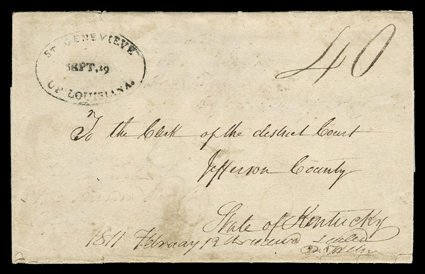 ST. GENEVIEVE
SEPT. 19
UP. LOUISIANA.
40
To the Clerk of the district Court
Jefferson County
State of Kentucky
1811 February 12